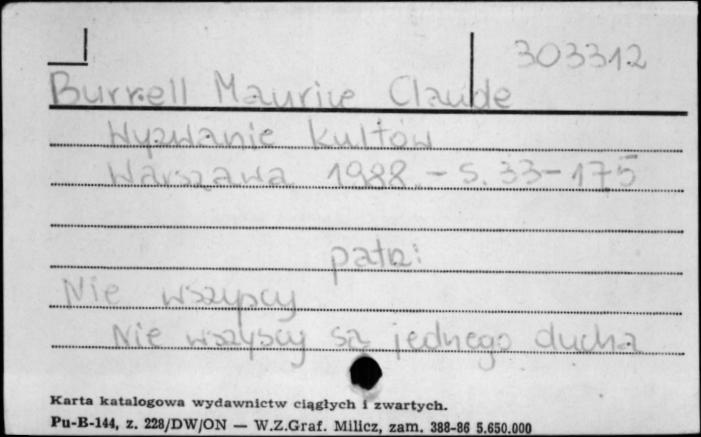 303312
Burrell Maurice Claude
Wyzwanie kultów
Warszawa 1988. - S. 33-175
patrz:
Nie wszyscy
Nie wszyscy są jednego ducha
Karta katalogowa wydawnictw ciągłych i zwartych.
Pu-B-144, z. 228/DW/ON — W.Z.Graf. Milicz, zam. 388-86 5.650.000